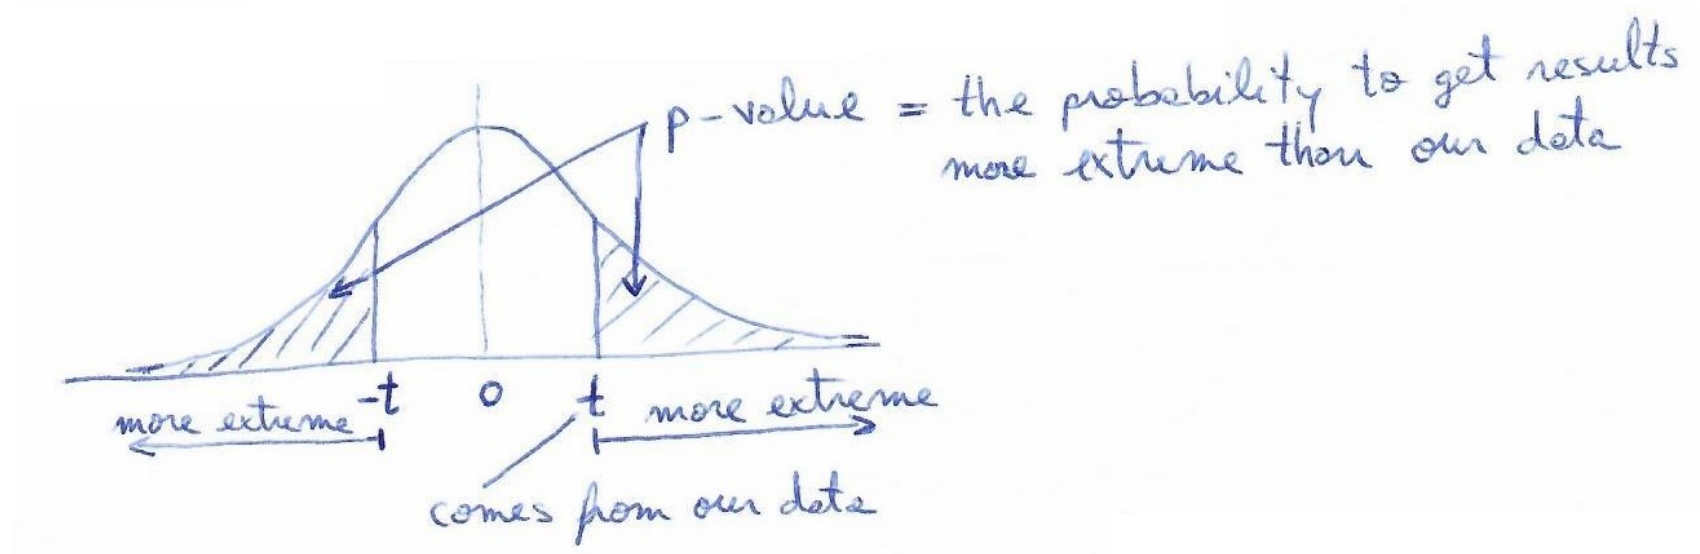 p-value = the probability to get results
more extreme than our data
-t 0 t
more extreme more extreme
comes from our data